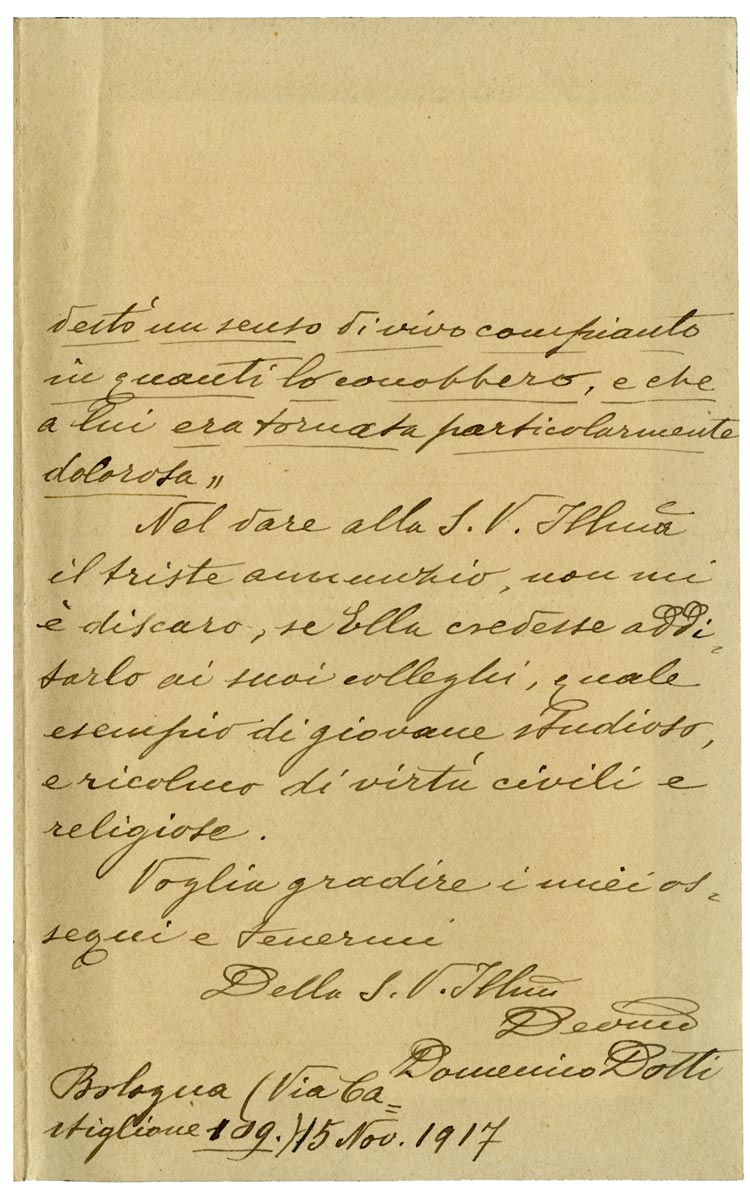 destò un senso di vivo compianto
in quanti lo conobbero, e che
a lui era tornata particolarmente
dolorosa „
Nel dare alla S. V. Illma
il triste annunzio, non mi
è discaro, se Ella credesse addi=
tarlo ai suoi colleghi, quale
esempio di giovane studioso,
e ricolmo di virtù civili e
religiose.
Voglia gradire i miei os=
sequi e tenermi
Della S. V. Illma
Devmo
Domenico Dotti
Bologna (Via Ca=
stiglione 109.) 15 Nov. 1917